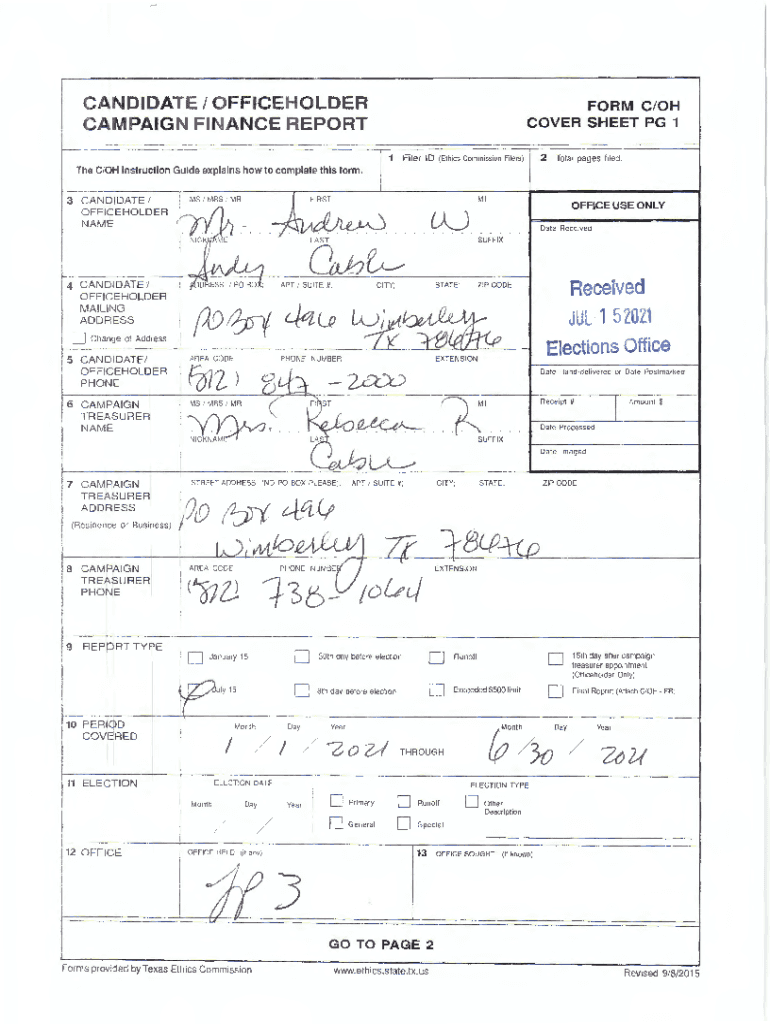 CANDIDATE / OFFICEHOLDER
CAMPAIGN FINANCE REPORT
FORM C/OH
COVER SHEET PG 1
The C/OH Instruction Guide explains how to complete this form.
1 Filer ID (Ethics Commission Filers)
2 Total pages filed:
3 CANDIDATE / OFFICEHOLDER NAME
MS / MRS / MR FIRST MI
Mr. Andrew W
NICKNAME LAST SUFFIX
Andy Cable
OFFICE USE ONLY
Date Received
Received
JUL 15 2021
Elections Office
4 CANDIDATE / OFFICEHOLDER MAILING ADDRESS
Change of Address
ADDRESS / PO BOX; APT / SUITE #; CITY; STATE; ZIP CODE
PO Box 496 Wimberley
TX 78676
5 CANDIDATE / OFFICEHOLDER PHONE
AREA CODE PHONE NUMBER EXTENSION
(512) 847-2000
Date Hand-delivered or Date Postmarked
6 CAMPAIGN TREASURER NAME
MS / MRS / MR FIRST MI
Mrs. Rebecca R
NICKNAME LAST SUFFIX
Cable
Receipt # Amount $
Date Processed
Date Imaged
7 CAMPAIGN TREASURER ADDRESS
(Residence or Business)
STREET ADDRESS (NO PO BOX PLEASE); APT / SUITE #; CITY; STATE; ZIP CODE
PO Box 496
Wimberley TX 78676
8 CAMPAIGN TREASURER PHONE
AREA CODE PHONE NUMBER EXTENSION
(512) 738-1064
9 REPORT TYPE
January 15 30th day before election Runoff 15th day after campaign treasurer appointment (Officeholder Only)
July 15 8th day before election Exceeded $500 limit Final Report (Attach C/OH - FR)
10 PERIOD COVERED
Month Day Year Month Day Year
1 / 1 / 2021 THROUGH 6 / 30 / 2021
11 ELECTION
ELECTION DATE ELECTION TYPE
Month Day Year Primary Runoff Other Description
/ / General Special
12 OFFICE
OFFICE HELD (if any)
JP 3
13 OFFICE SOUGHT (if known)
GO TO PAGE 2
Forms provided by Texas Ethics Commission www.ethics.state.tx.us Revised 9/8/2015